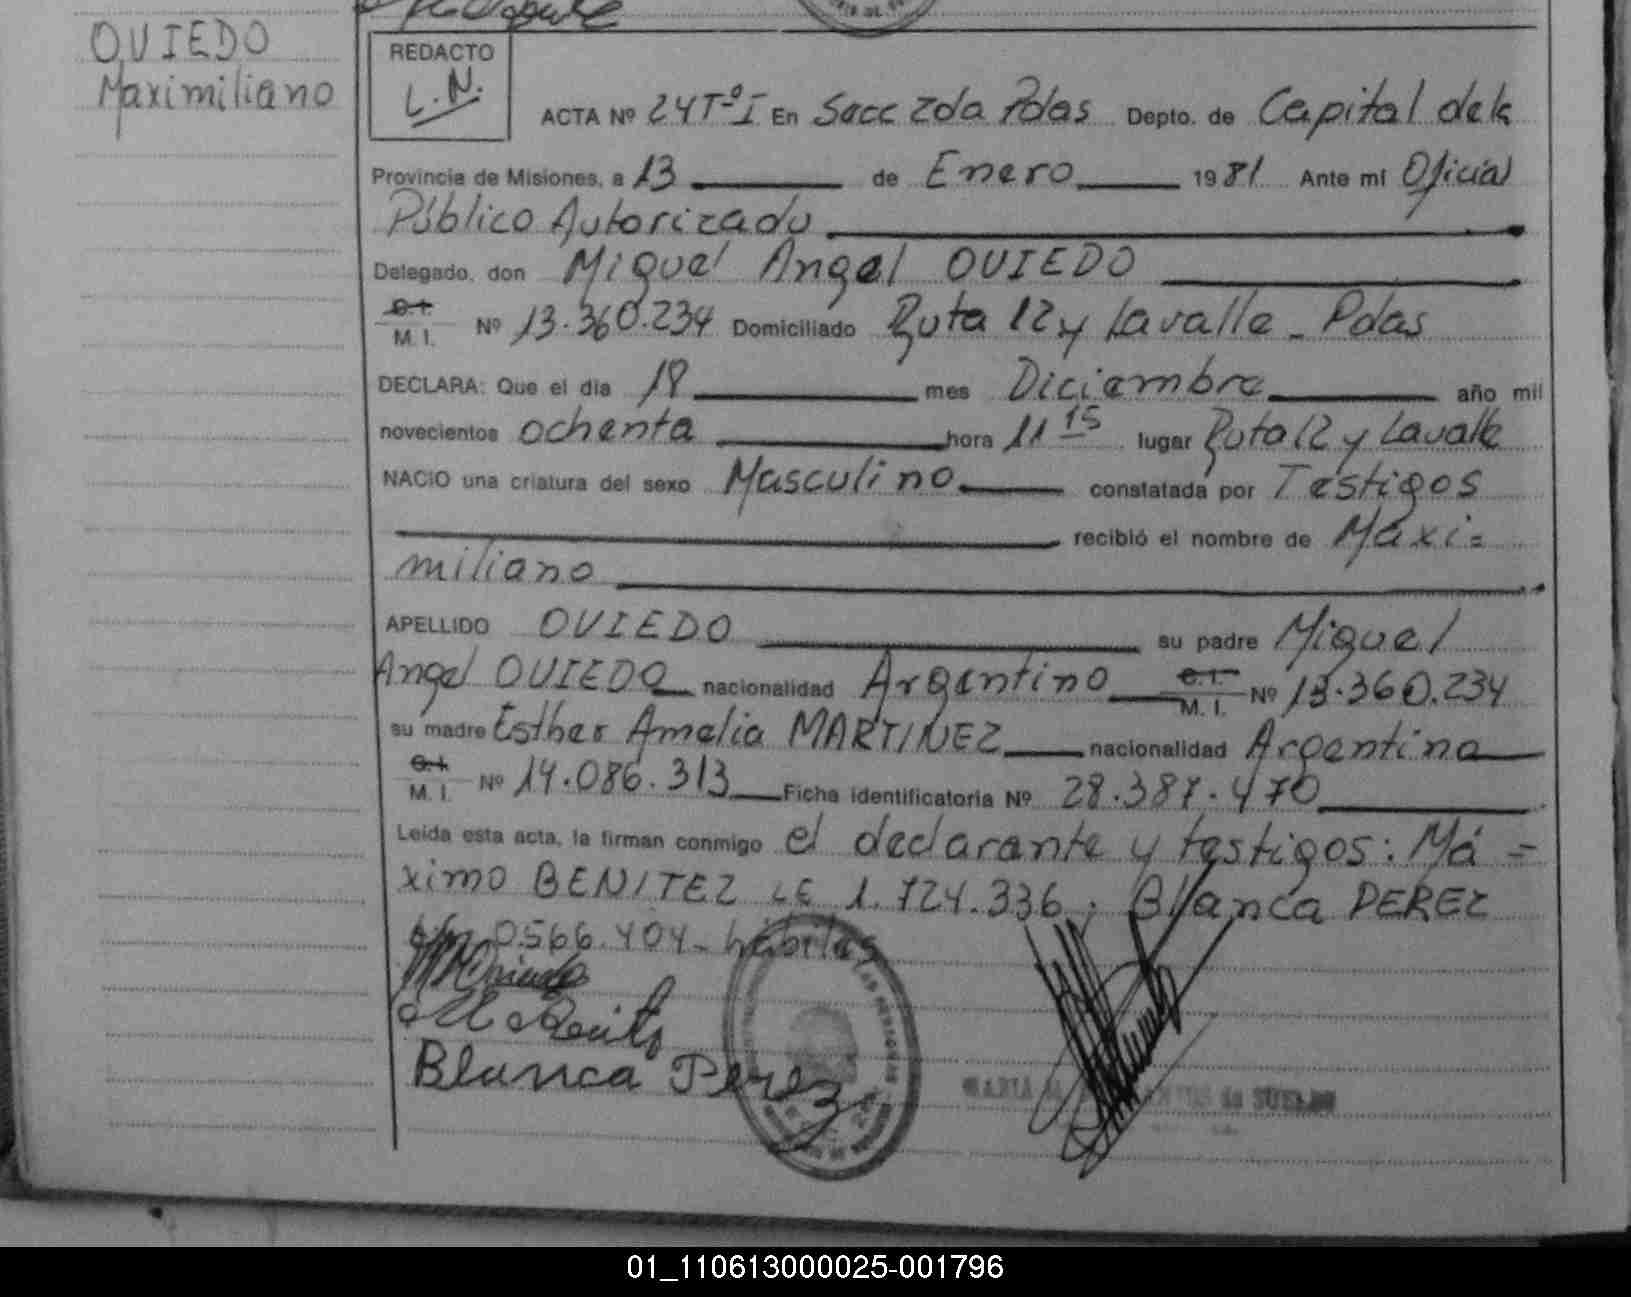 OVIEDO
Maximiliano
REDACTO
L.N.
ACTA Nº 24 Tº I En Secc 2da Pdas Depto. de Capital de la
Provincia de Misiones, a 13 de Enero 1981 Ante mi Oficial
Público Autorizado
Delegado, don Miguel Angel OVIEDO
C.I.
M. I. Nº 13.360.234 Domiciliado Ruta 12 y Lavalle - Pdas
DECLARA: Que el día 18 mes Diciembre año mil
novecientos ochenta hora 11 15 lugar Ruta 12 y Lavalle
NACIO una criatura del sexo Masculino constatada por Testigos
recibió el nombre de Maxi=
miliano
APELLIDO OVIEDO su padre Miguel
Angel OVIEDO nacionalidad Argentino C.I. M. I. Nº 13.360.234
su madre Esther Amelia MARTINEZ nacionalidad Argentina
C.I.
M. I. Nº 14.086.313 Ficha identificatoria Nº 28.387.470
Leída esta acta, la firman conmigo el declarante y testigos: Má=
ximo BENITEZ LE 1.724.336; Blanca PEREZ
0566.404 - hábiles
Blanca Perez
MARIA de SUELDO
01_110613000025-001796